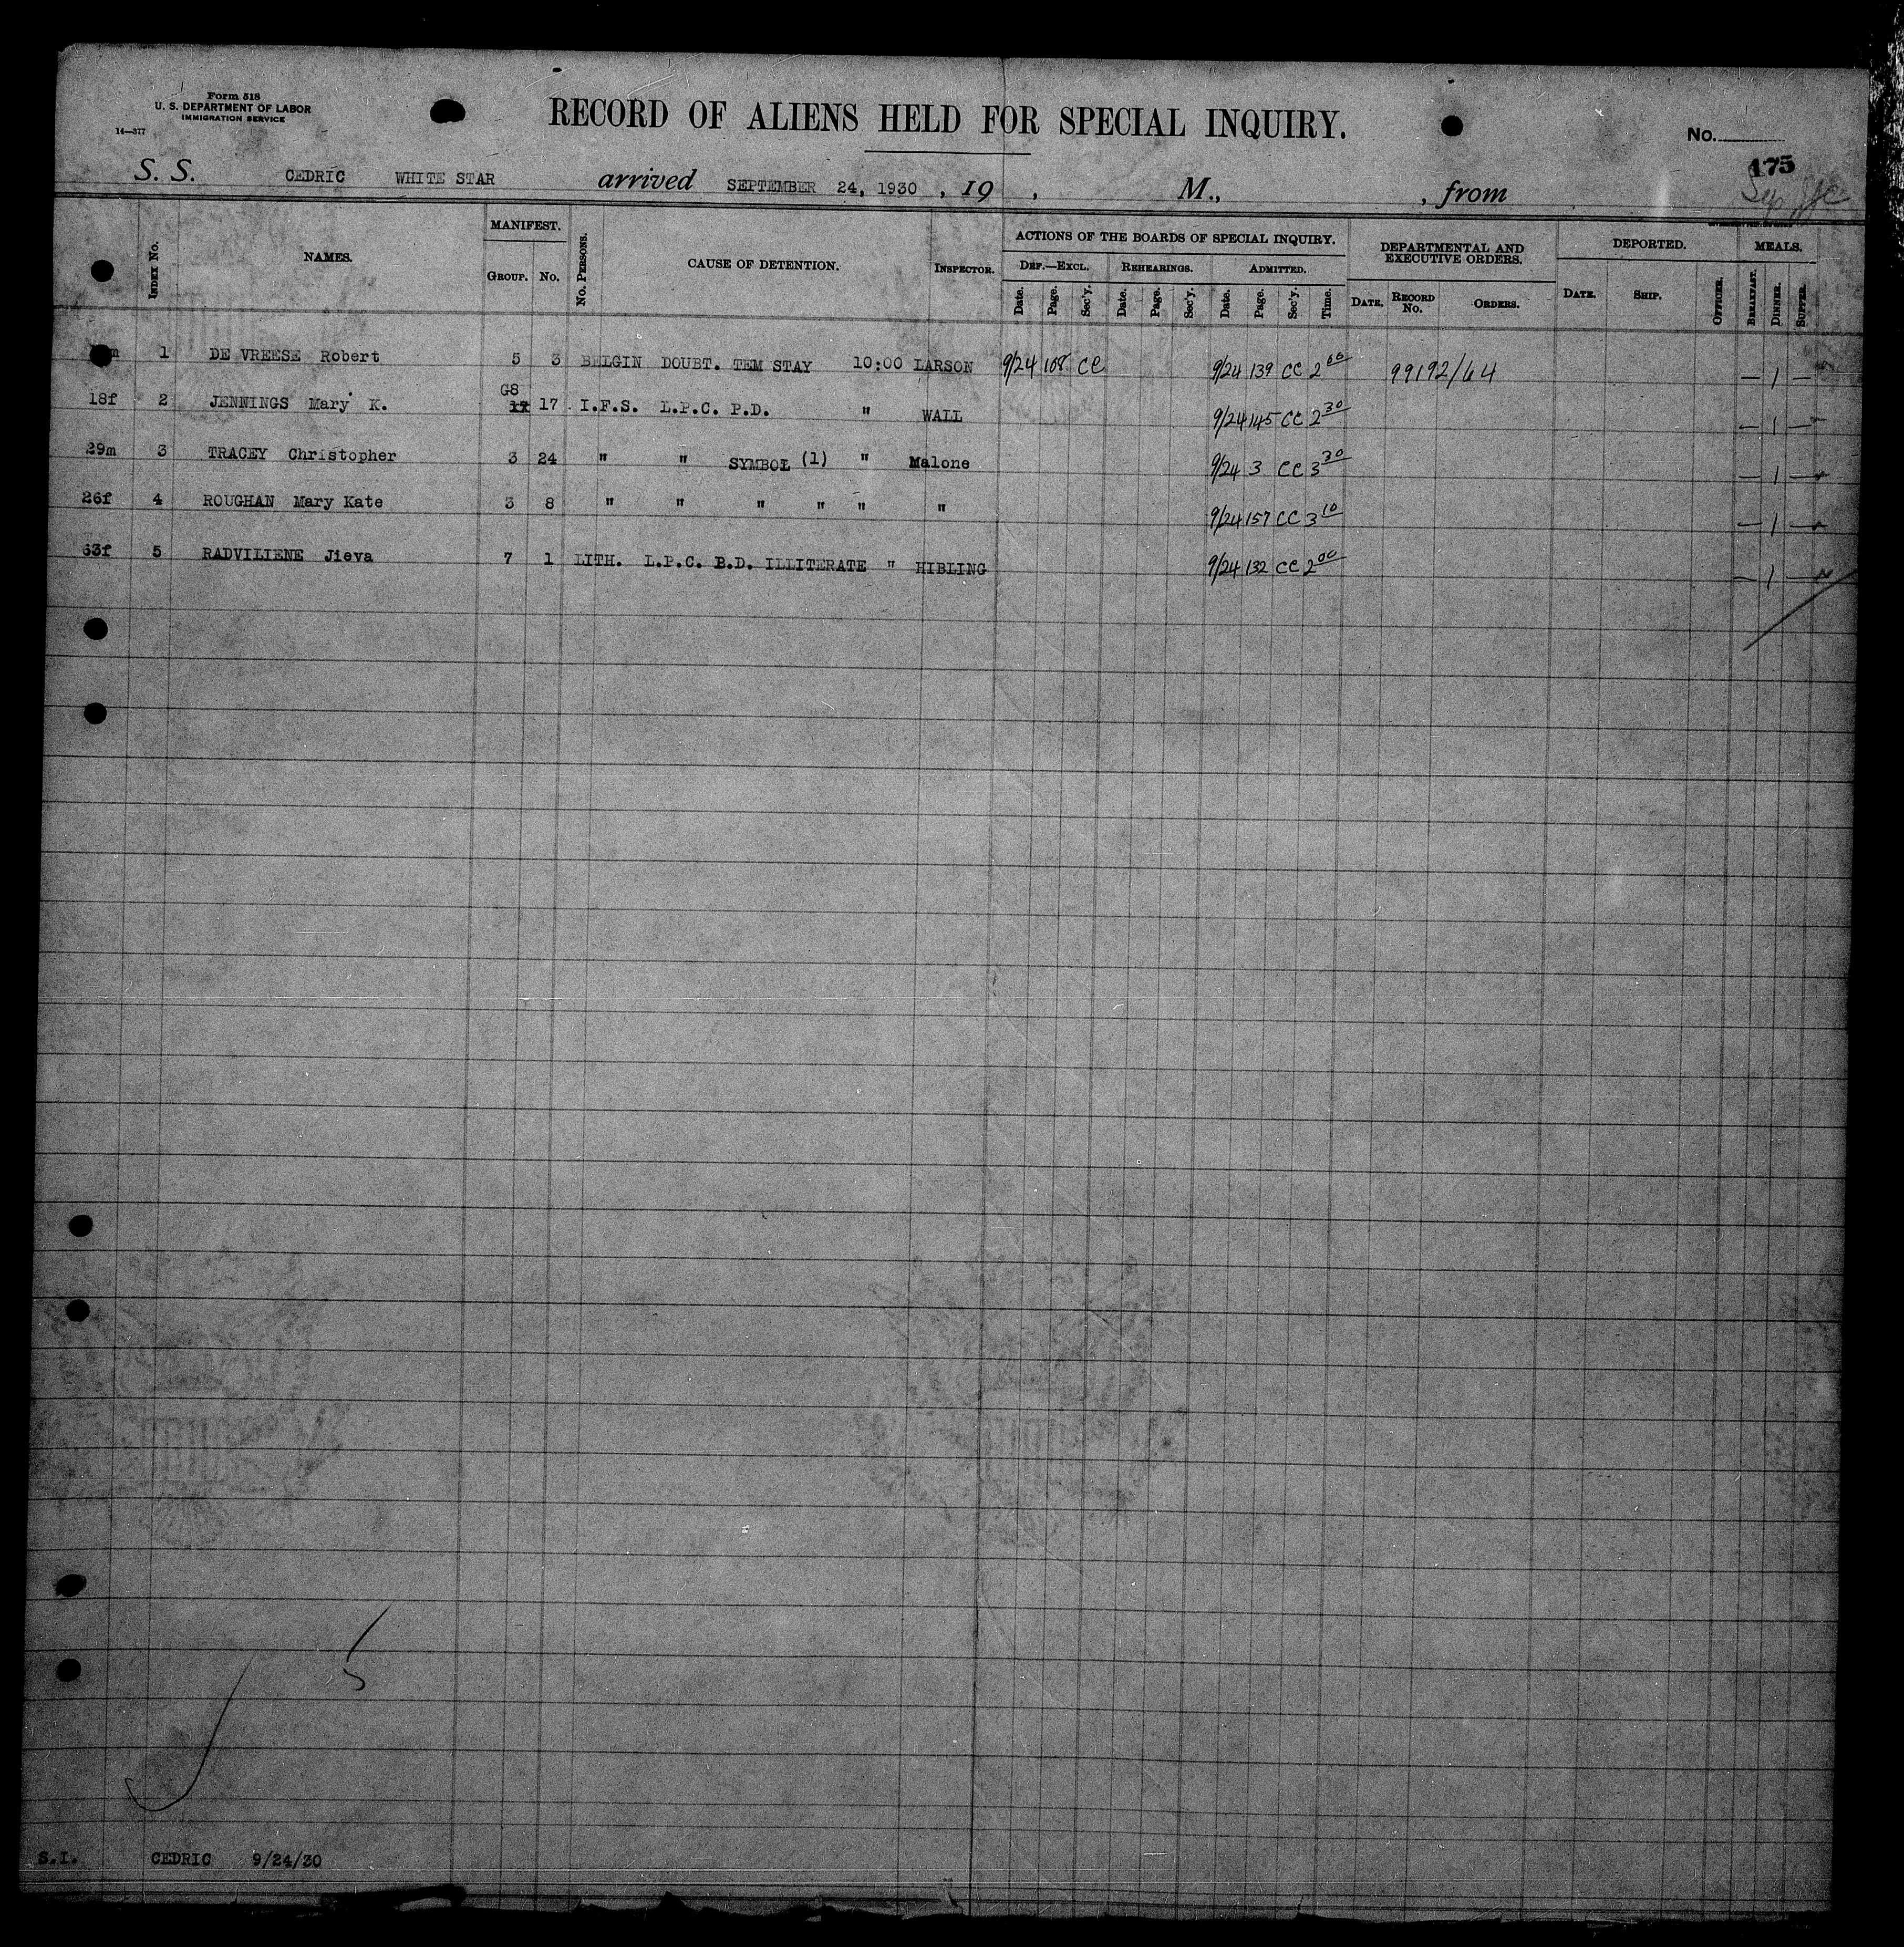 Form 518
U. S. DEPARTMENT OF LABOR
IMMIGRATION SERVICE
14—377
RECORD OF ALIENS HELD FOR SPECIAL INQUIRY.
No.
175
S. S. CEDRIC WHITE STAR arrived SEPTEMBER 24, 1930 , 19 , M., , from
Index No.
NAMES.
MANIFEST.
Group. No.
No. Persons.
CAUSE OF DETENTION.
Inspector.
ACTIONS OF THE BOARDS OF SPECIAL INQUIRY.
Def.—Excl. Rehearings. Admitted.
Date. Page. Sec'y. Date. Page. Sec'y. Date. Page. Sec'y. Time.
DEPARTMENTAL AND EXECUTIVE ORDERS.
Date. Record No. Orders.
DEPORTED.
Date. Ship. Officer.
MEALS.
Breakfast. Dinner. Supper.
m 1 DE VREESE Robert 5 3 BELGIN DOUBT. TEM STAY 10:00 LARSON 9/24 108 CC 9/24 139 CC 2 00 99192/64 — 1 —
G8
18f 2 JENNINGS Mary K. 17 17 I.F.S. L.P.C. P.D. " WALL 9/24 145 CC 2 30 — 1 —
29m 3 TRACEY Christopher 3 24 " " SYMBOL (1) " Malone 9/24 3 CC 3 30 — 1 —
26f 4 ROUGHAN Mary Kate 3 8 " " " " " " 9/24 157 CC 3 10 — 1 —
63f 5 RADVILIENE Jieva 7 1 LITH. L.P.C. B.D. ILLITERATE " HIBLING 9/24 132 CC 2 00 — 1 —
5
S.I. CEDRIC 9/24/30